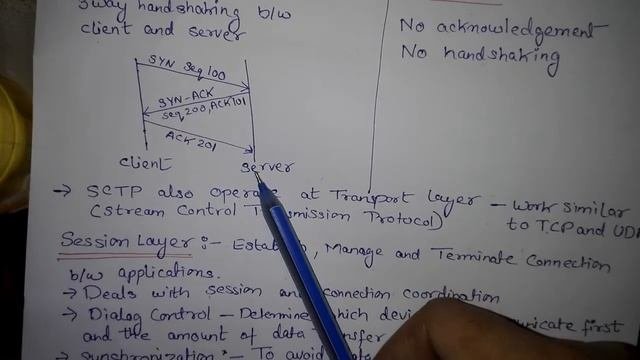 3way handshaking b/w
client and server
No acknowledgement
No handshaking
SYN Seq 100
SYN-ACK
Seq 200, ACK 101
ACK 201
client
server
→ SCTP also operate at Transport layer - Work similar
(Stream Control Transmission Protocol) to TCP and UDP
Session Layer :- Manage and Terminate Connection
b/w applications.
→ Deals with session and connection coordination
→ Dialog Control - Determine which first
and the amount of data
→ Synchronization :- To avoid